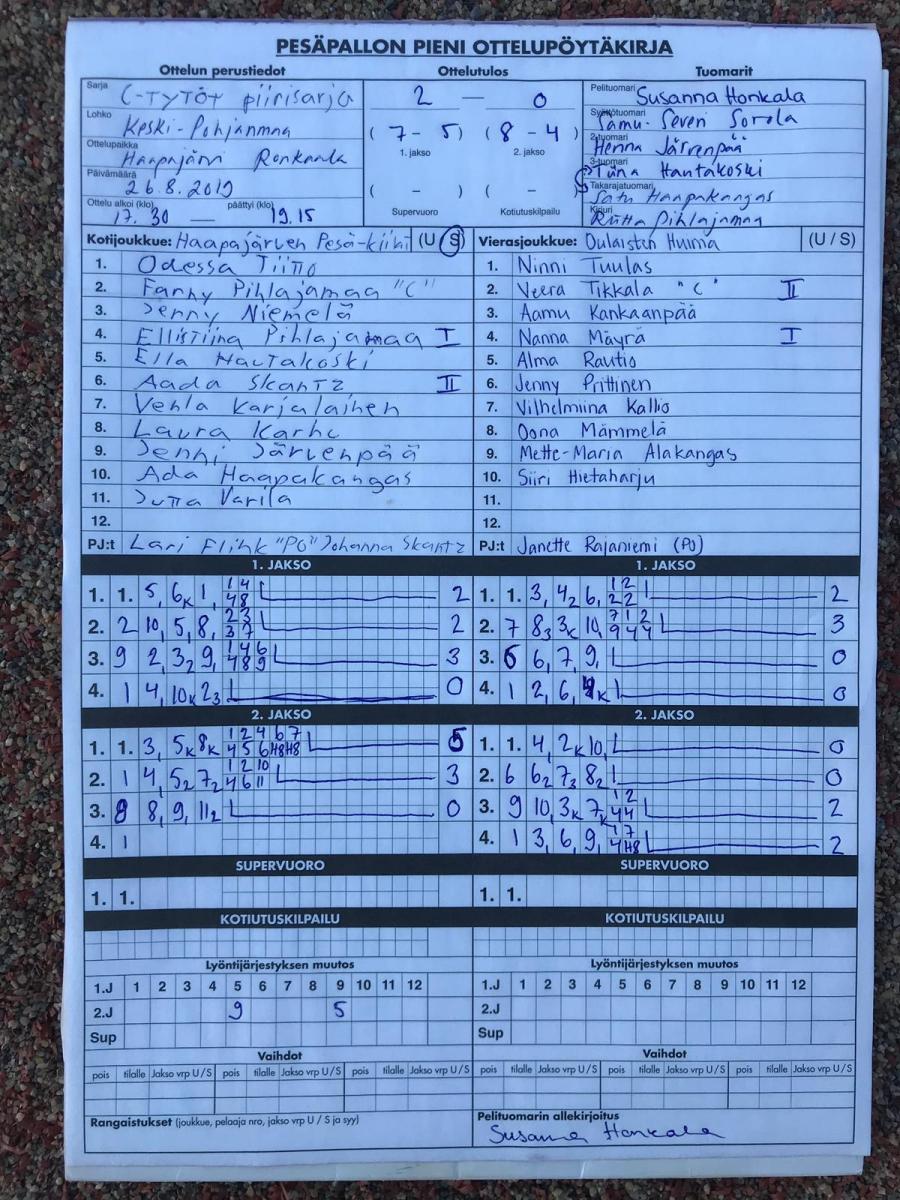 PESÄPALLON PIENI OTTELUPÖYTÄKIRJA
Ottelun perustiedot
Sarja C-TYTÖT piirisarja
Lohko Keski-Pohjanmaa
Ottelupaikka Haapajärvi Ronkaala
Päivämäärä 26.8.2019
Ottelu alkoi (klo) 17.30 — päättyi (klo) 19.15
Ottelutulos
2 — 0
( 7 - 5 ) ( 8 - 4 )
1. jakso 2. jakso
( - ) ( - )
Supervuoro Kotiutuskilpailu
Tuomarit
Pelituomari Susanna Honkala
Syöttötuomari Samu-Severi Sorola
2-tuomari Henna Järvenpää
3-tuomari Tiina Hautakoski
Takarajatuomari Satu Haapakangas
Kirjuri Riitta Pihlajamaa
Kotijoukkue: Haapajärven Pesä-kiilat (U / S)
1. Odessa Tiitto
2. Fanny Pihlajamaa "C"
3. Jenny Niemelä
4. Ellistiina Pihlajamaa I
5. Ella Hautakoski
6. Aada Skantz II
7. Venla Karjalainen
8. Laura Karhu
9. Jenni Järvenpää
10. Ada Haapakangas
11. Jutta Varila
12.
PJ:t Lari Flink "PO" Johanna Skantz
Vierasjoukkue: Oulaisten Huima (U / S)
1. Ninni Tuulas
2. Veera Tikkala "C" II
3. Aamu Kankaanpää
4. Nanna Mäyrä I
5. Alma Rautio
6. Jenny Prittinen
7. Vilhelmiina Kallio
8. Oona Mämmelä
9. Mette-Maria Alakangas
10. Siiri Hietaharju
11.
12.
PJ:t Janette Rajaniemi (PJ)
1. JAKSO
1. 1. 5, 6K 1, 1 4 2
48
2. 2 10, 5, 8, 2 3 2
3 7
3. 9 2, 3₂ 9, 1 4 6 3
4 8 9
4. 1 4, 10K 2₃ 0
2. JAKSO
1. 1. 3, 5K 8K 1 2 4 6 7 5
4 5 6 H8 H8
2. 1 4, 5₂ 7₂ 1 2 10 3
4 6 11
3. 8 8, 9, 11₂ 0
4. 1
SUPERVUORO
1. 1.
KOTIUTUSKILPAILU
1. JAKSO
1. 1. 3, 4₂ 6, 1 2 2
2 2
2. 7 8₃ 3K 10, 7 1 2 3
9 4 4
3. 6 6, 7, 9, 0
4. 1 2, 6, K 0
2. JAKSO
1. 1. 4, 2K 10, 0
2. 6 6₂ 7₃ 8₂ 0
3. 9 10, 3K 7K 1 2 2
4 4
4. 1 3, 6, 9, 1 7 2
4 H8
SUPERVUORO
1. 1.
KOTIUTUSKILPAILU
Lyöntijärjestyksen muutos
1.J 1 2 3 4 5 6 7 8 9 10 11 12
2.J 9 5
Sup
Vaihdot
pois tilalle Jakso vrp U / S pois tilalle Jakso vrp U / S pois tilalle Jakso vrp U / S
Rangaistukset (joukkue, pelaaja nro, jakso vrp U / S ja syy)
Lyöntijärjestyksen muutos
1.J 1 2 3 4 5 6 7 8 9 10 11 12
2.J
Sup
Vaihdot
pois tilalle Jakso vrp U / S pois tilalle Jakso vrp U / S pois tilalle Jakso vrp U / S
Pelituomarin allekirjoitus
Susanna Honkala